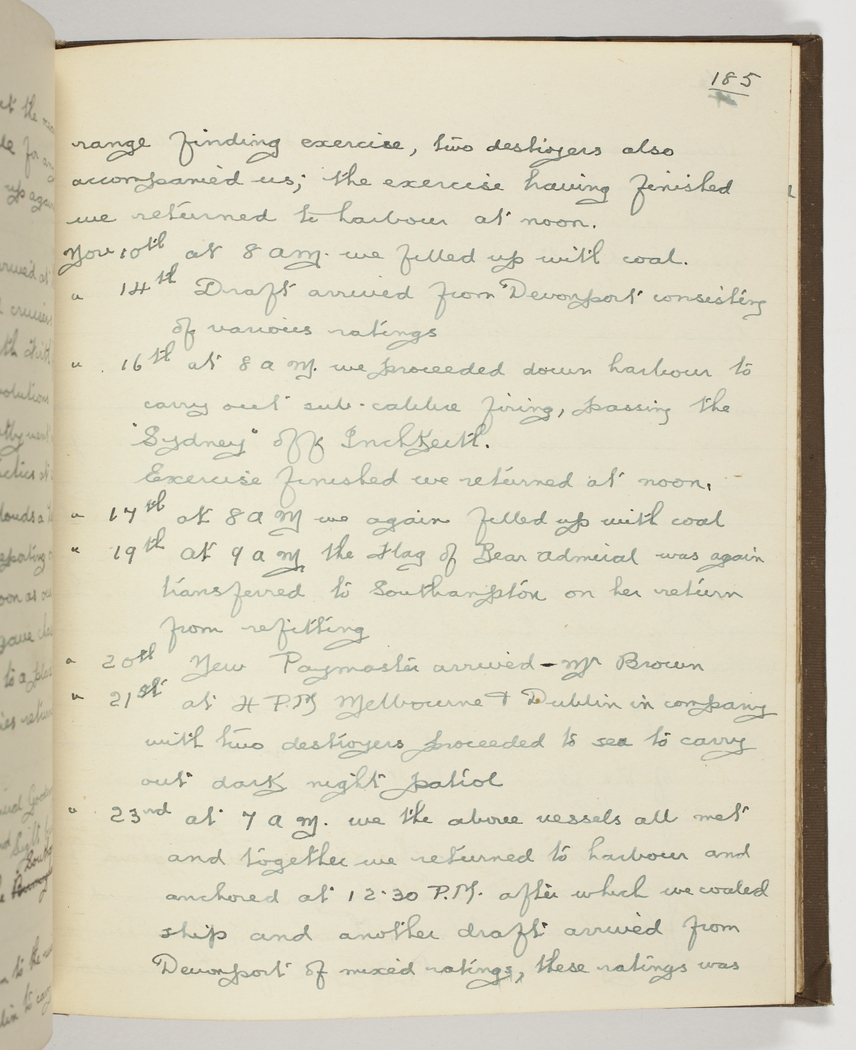 185
range finding exercise, two destroyers also
accompanied us; the exercise having finished
we returned to harbour at noon.
Nov 10th at 8 am. we filled up with coal.
" 14th Draft arrived from Devonport consisting
of various ratings
" . 16th at 8 a m. we proceeded down harbour to
carry out sub-calibre firing, passing the
"Sydney" off InchKeith.
Exercise finished we returned at noon.
" 17th at 8 a m we again filled up with coal
" 19th at 9 a m the Flag of Rear admiral was again
transferred to Southampton on her return
from refitting
" 20th New Paymaster arrived - Mr Brown
" 21st at 4 P.M Melbourne & Dublin in company
with two destroyers proceeded to sea to carry
out dark night patrol
" 23rd at 7 a m. we the above vessels all met
and together we returned to harbour and
anchored at 12.30 P.M. after which we coaled
ship and another draft arrived from
Devonport of mixed ratings, these ratings was